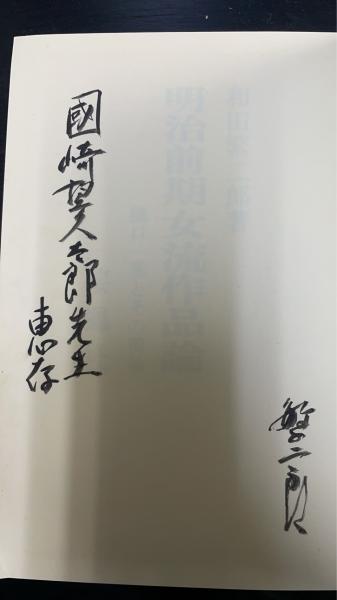 繁二郎
和田繁二郎著
明治前期女流作品論
樋口一葉とその前後
國崎望久太郎先生
恵存